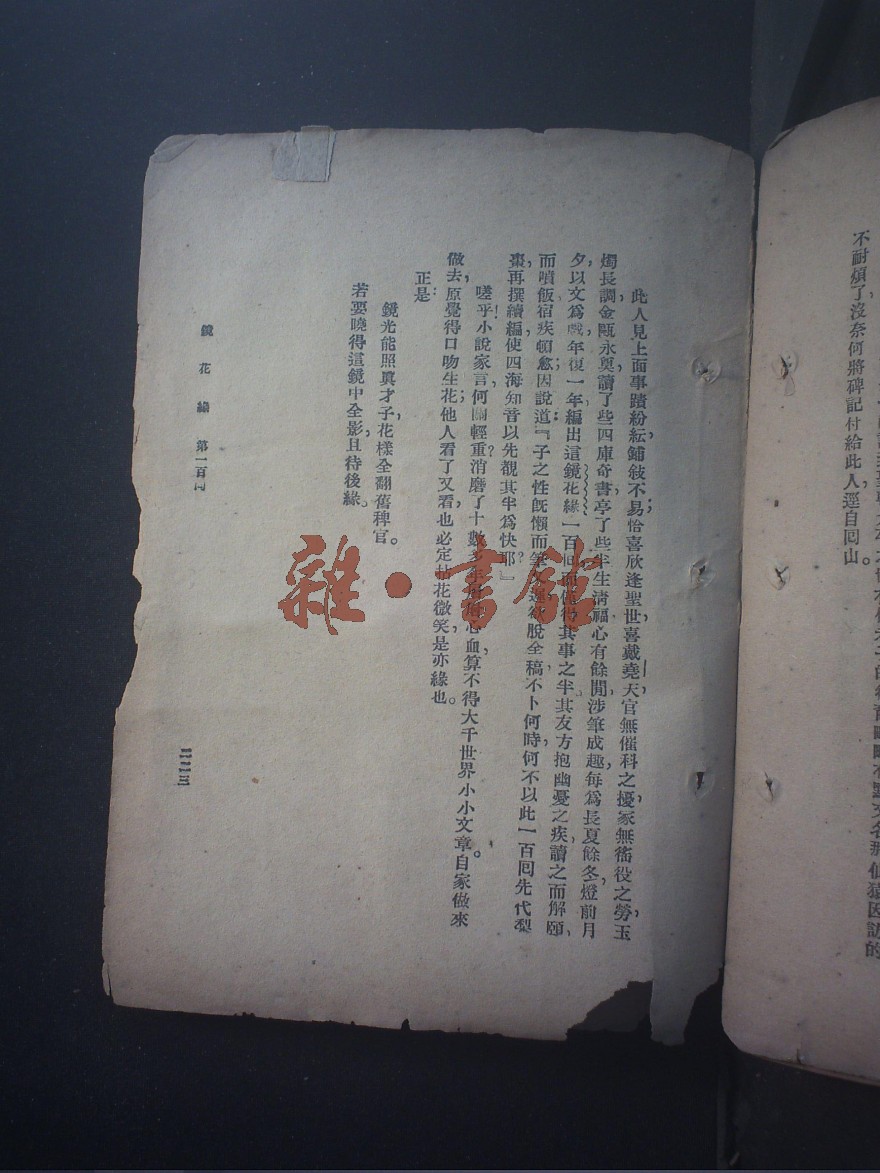 不耐煩了沒奈何將碑記付給此人逕自回山。
此人見上面事蹟紛紜，鋪敍不易；恰喜欣逢聖世，喜戴堯天，官無催科之擾，家無徭役之勞，玉
燭長調，金甌永奠；讀了些四庫奇書，享了些半生淸福。心有餘閒，涉筆成趣，每於長夏餘冬，燈前月
夕，以文爲戲，年復一年，編出這鏡花緣一百回，而僅得其事之半。其友方抱幽憂之疾，讀之而解頤、
而噴飯，宿疾頓愈。因說道：『子之性旣懶而筆又遲，欲脫全稿，不卜何時；何不以此一百回先付梨
棗，再撰續編，使四海知音以先覩其半爲快耶？』
嗟乎！小說家言，何關輕重！消磨了十數多年層層心血，算不得大千世界小小文章。自家做來
做去，原覺得口吻生花；他人看了又看，也必定拈花微笑：是亦緣也。
正是：
鏡光能照眞才子，花樣全翻舊稗官。
若要曉得這鏡中全影，且待後緣。
鏡花緣　第一百回
二二三
雜·書館